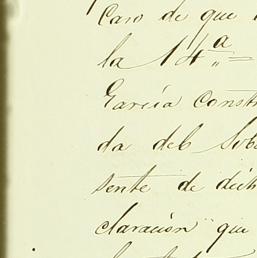 Caso de que
la 14ª =
García Const
da del Sob
sente de dich
claración que